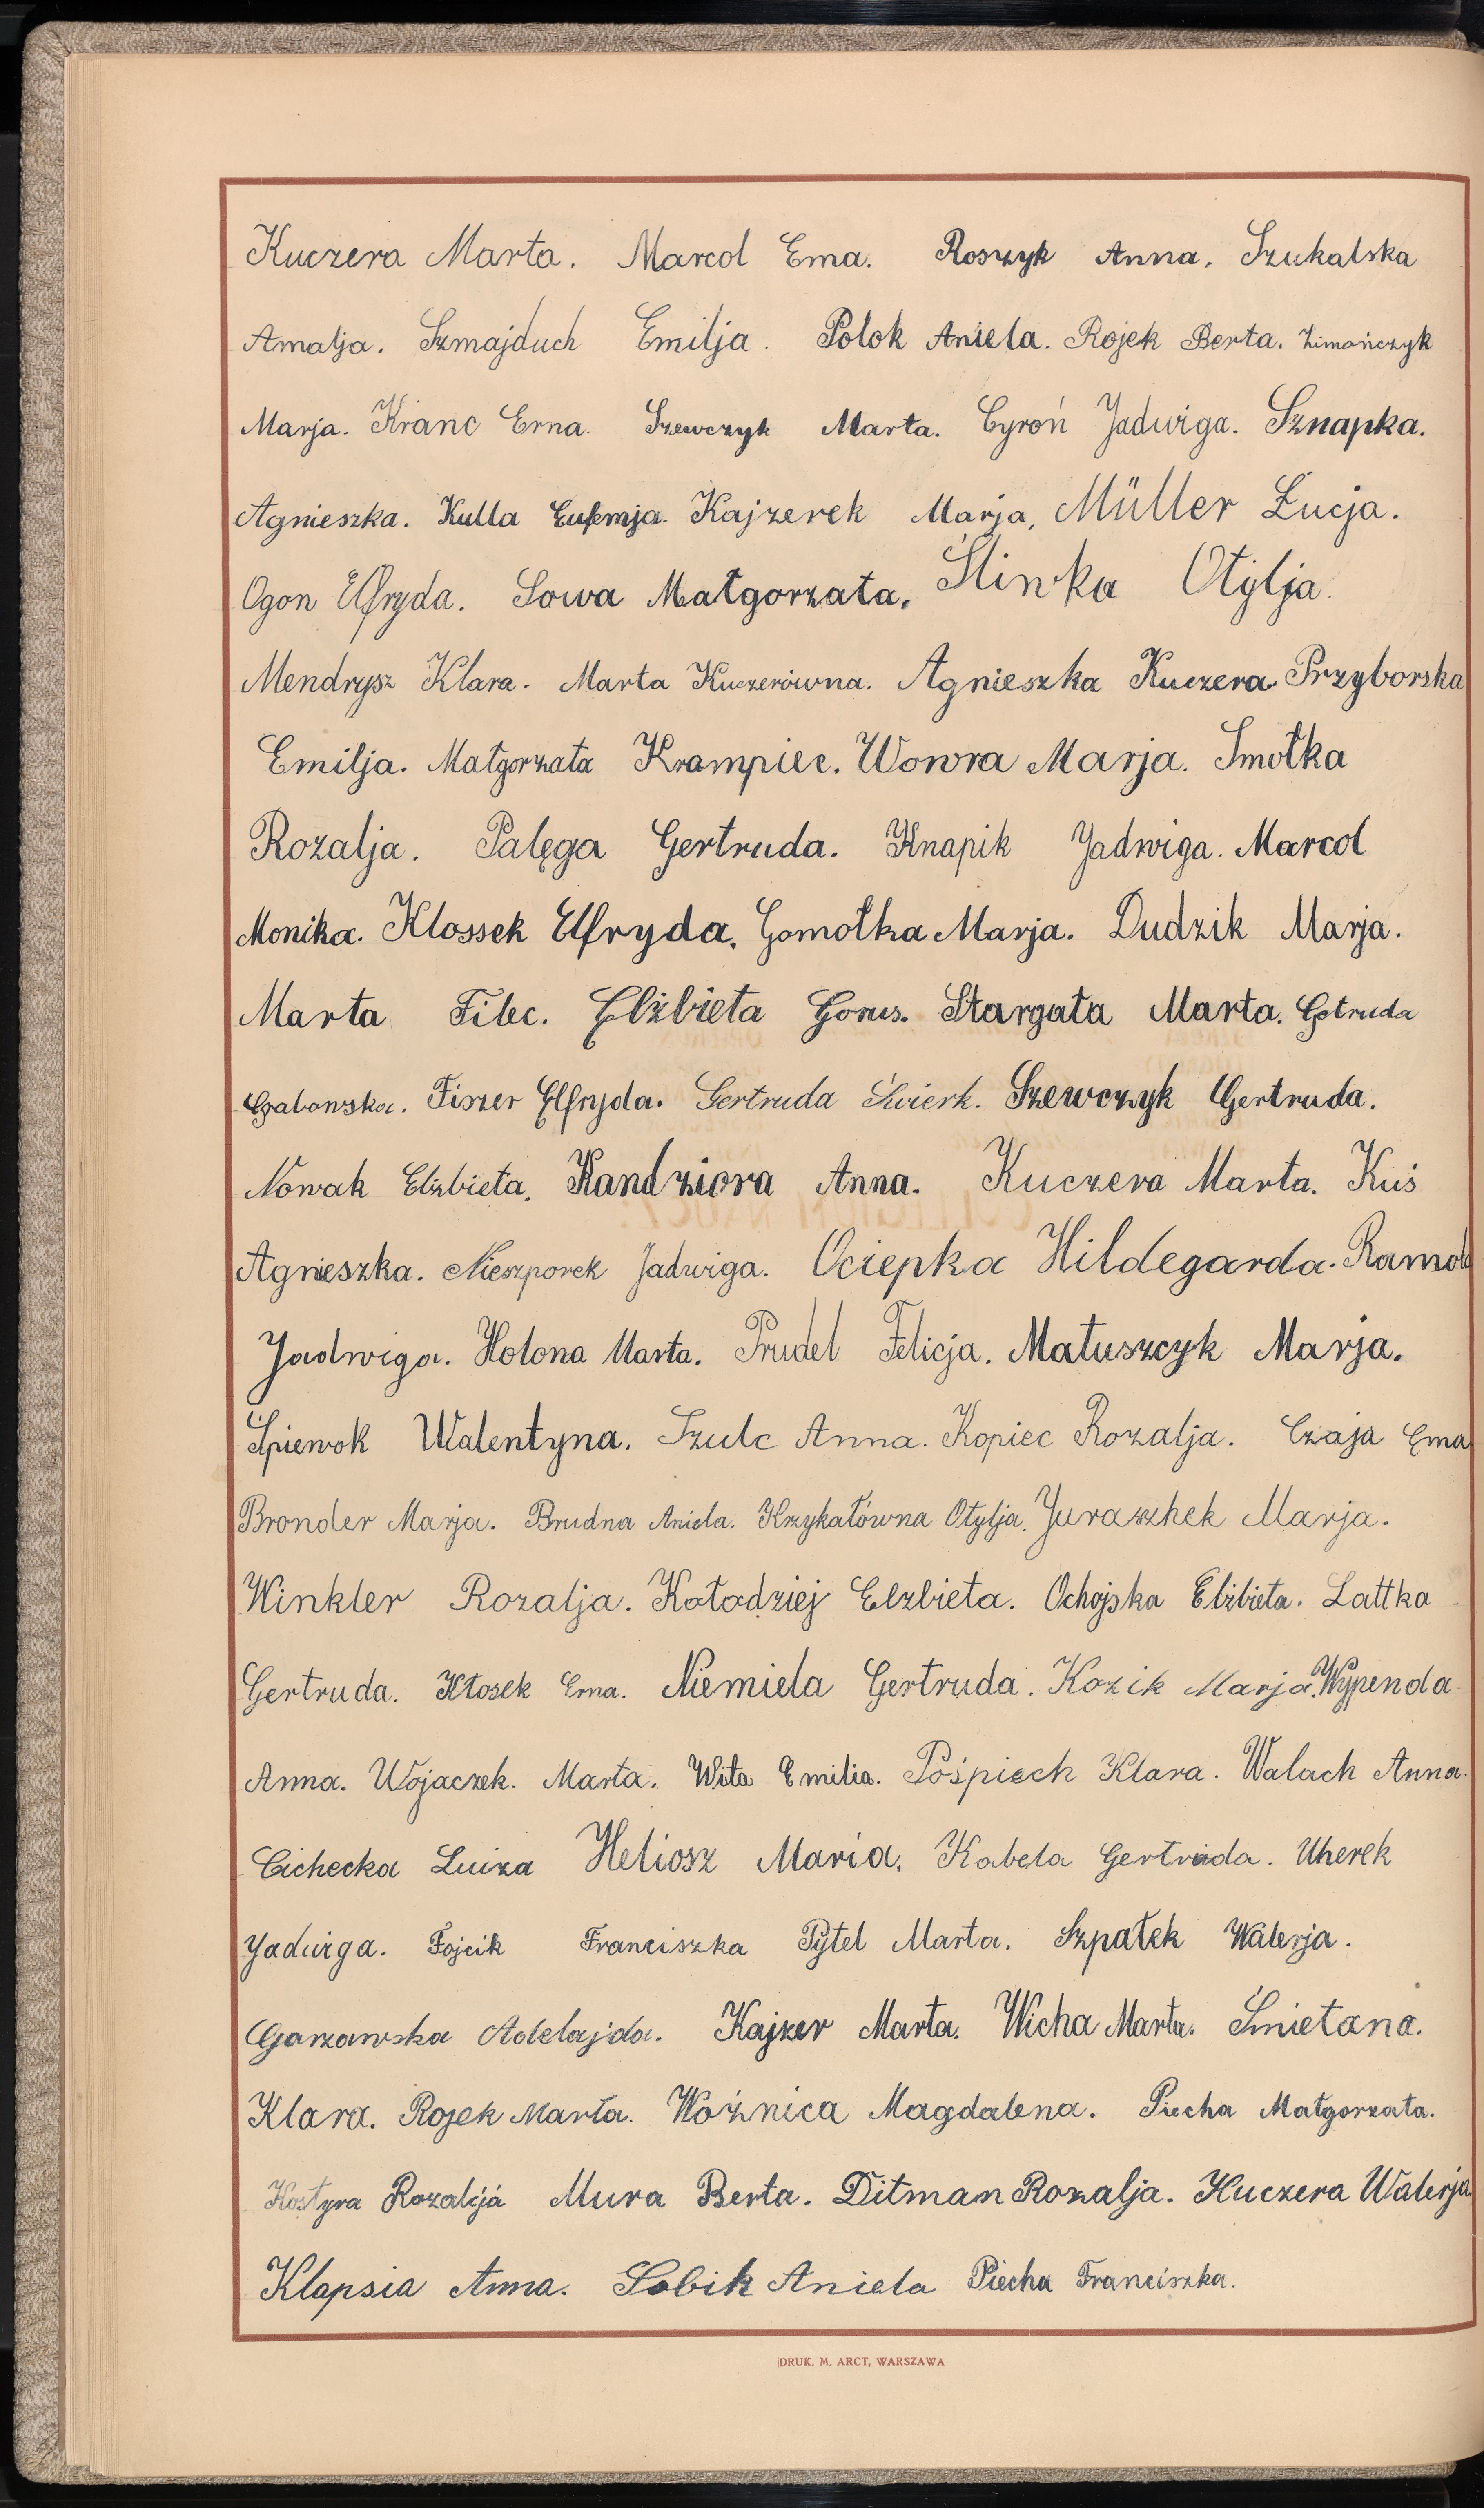 Kuczera Marta. Marcol Ema. Roszyk Anna. Szukalska
Amalja. Szmajduch Emilja. Polok Aniela. Rojek Berta. Zimończyk
Marja. Kranc Erna. Szewczyk Marta. Cyroń Jadwiga. Sznapka.
Agnieszka. Kulla Eufemja. Kajzerek Marja, Müller Łucja.
Ogon Elfryda. Sowa Małgorzata. Ślinka Otylja.
Mendrysz Klara. Marta Kuczerówna. Agnieszka Kuczera. Przyborska
Emilja. Małgorzata Krampiec. Wowra Marja. Smołka
Rozalja. Palęga Gertruda. Knapik Jadwiga. Marcol
Monika. Klossek Elfryda. Gomołka Marja. Dudzik Marja.
Marta Filec. Elżbieta Gorus. Stargata Marta. Getruda
Grabowska. Fiszer Elfryda. Gertruda Świerk. Szewczyk Gertruda.
Nowak Elżbieta. Kandziora Anna. Kuczera Marta. Kuś
Agnieszka. Nieszporek Jadwiga. Ociepka Hildegarda.
Jadwiga. Holona Marta. Prudel Felicja. Matuszczyk Marja.
Śpiewok Walentyna. Szulc Anna. Kopiec Rozalja. Czaja Ema
Bronder Marja. Brudna Aniela. Krzykałówna Otylja. Juraszhek Marja.
Winkler Rozalja. Kołodziej Elzbieta. Ochojska Elżbieta. Lattka
Gertruda. Kłosek Erna. Niemiela Gertruda. Kozik Marja. Wypenda
Anna. Wojaczek. Marta. Wita Emilia. Pośpiech Klara. Walach Anna.
Cichecka Luiza Heliosz Maria. Kabela Gertruda. Uherek
Jadwiga. Fojcik Franciszka Pytel Marta. Szpałek Walerja.
Garzawska Adelajda. Kajzer Marta. Wicha Marta. Śmietana.
Klara. Rojek Marta. Woźnica Magdalena. Piecha Małgorzata.
Kostyra Rozalija Mura Berta. Ditman Rozalja. Kuczera Walerja
Klapsia Anna. Sobik Aniela Piecha Franciszka.
DRUK. M. ARCT, WARSZAWA